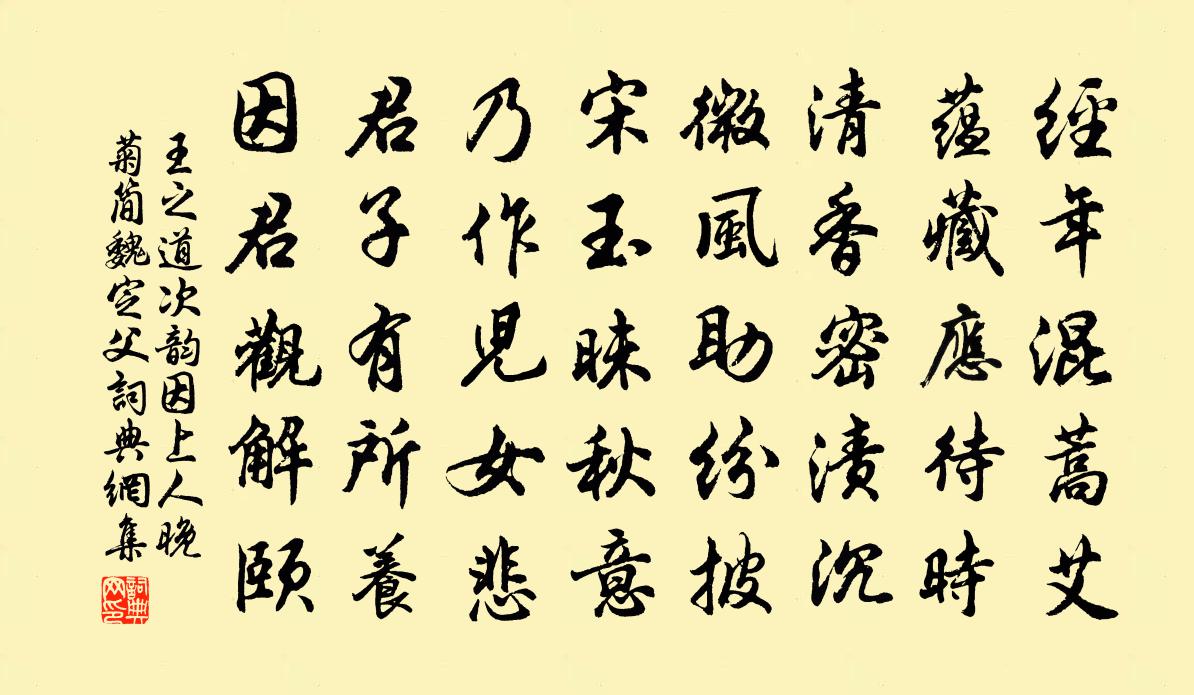 經年混蒿艾
蘊藏應待時
清香密漬沉
微風助紛披
宋玉昧秋意
乃作兒女悲
君子有所養
因君觀解頤
王之道次韵因上人晚
菊简魏定父詞典網集
詞典網印